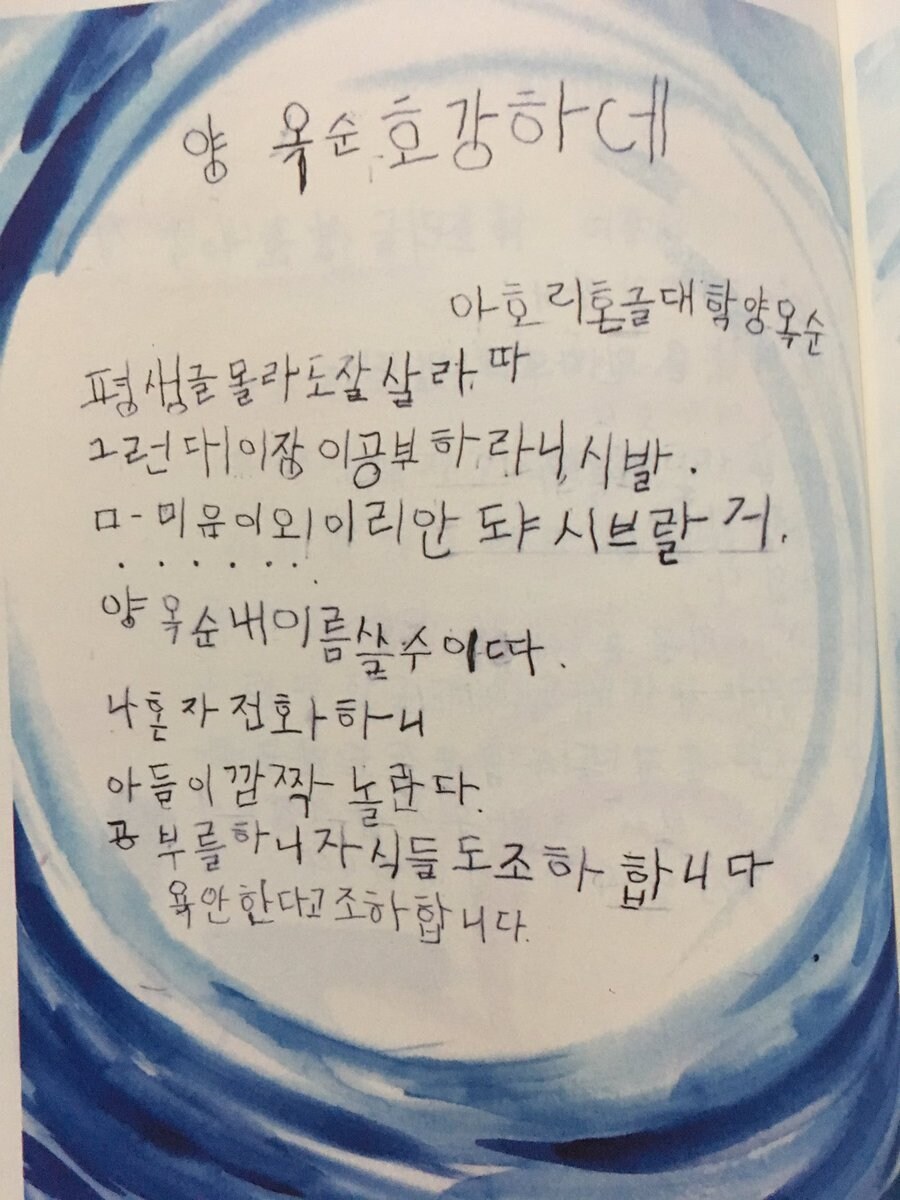 양 옥순 호강하데
아호 리혼글대 학양옥순
평생글 몰라도잘 살라따
그런대 이장 이공부 하라니, 시발.
ㅁ-미움이외 이리안 도냐 시브랄 거.
· · · · · · ·
양 옥순 내이름쓸수 이따.
나혼자 전화하니
아들이 깜짝 놀란다.
공부를하니 자식들 도조하 합니다
욕안한다고 조하합니다.